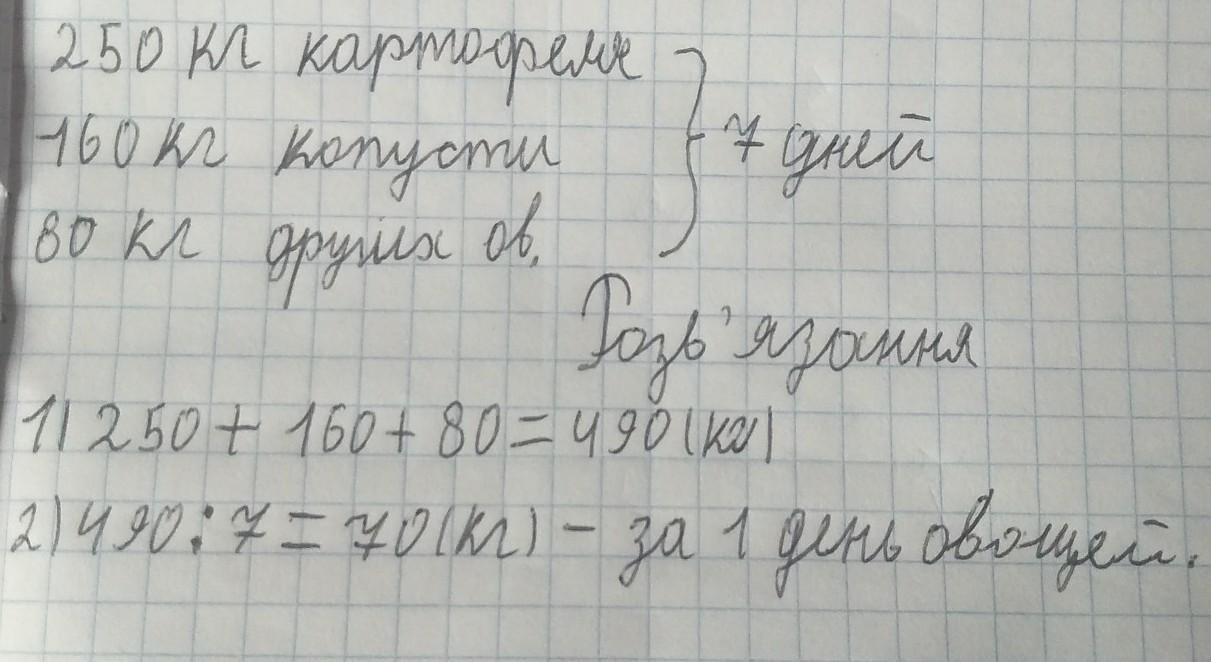 250 кг картофеля
160 кг копусти
80 кг других ов.
7 дней
Розв'язання
1) 250 + 160 + 80 = 490 (кг)
2) 490 : 7 = 70 (кг) - за 1 день овощей.